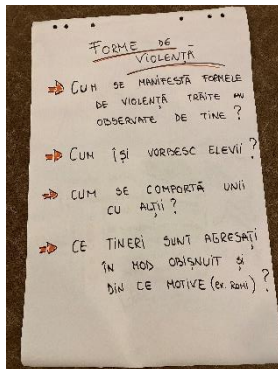 FORME DE
VIOLENȚĂ
CUM SE MANIFESTĂ FORMELE
DE VIOLENȚĂ TRĂITE SAU
OBSERVATE DE TINE?
CUM ÎȘI VORBESC ELEVII?
CUM SE COMPORTĂ UNII
CU ALȚII?
CE TINERI SUNT AGRESAȚI
ÎN MOD OBIȘNUIT ȘI
DIN CE MOTIVE (ex. ROMI)?